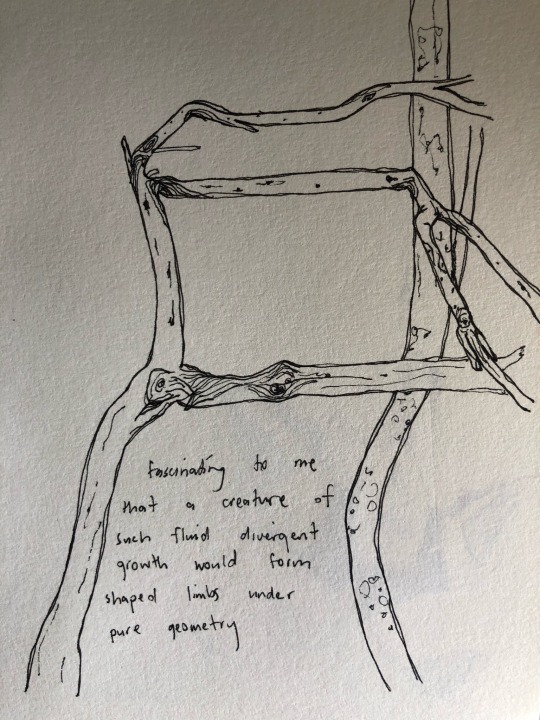 fascinating to me
that a creature of
such fluid divergent
growth would form
shaped limbs under
pure geometry